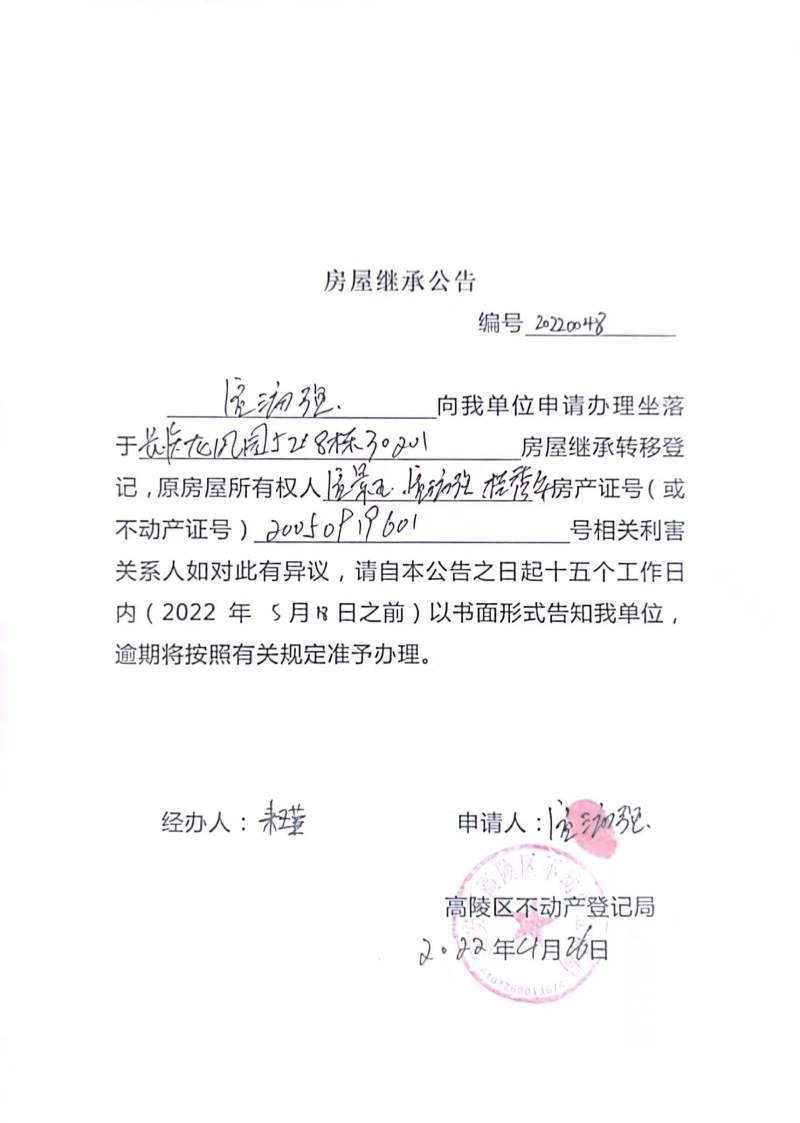 房屋继承公告
编号 20220048
向我单位申请办理坐落
于长庆龙凤园528栋30201 房屋继承转移登
记，原房屋所有权人 房产证号（或
不动产证号）20050919601 号相关利害
关系人如对此有异议，请自本公告之日起十五个工作日
内（2022 年 5月18日之前）以书面形式告知我单位，
逾期将按照有关规定准予办理。
经办人： 申请人：
高陵区不动产登记局
2022年4月26日